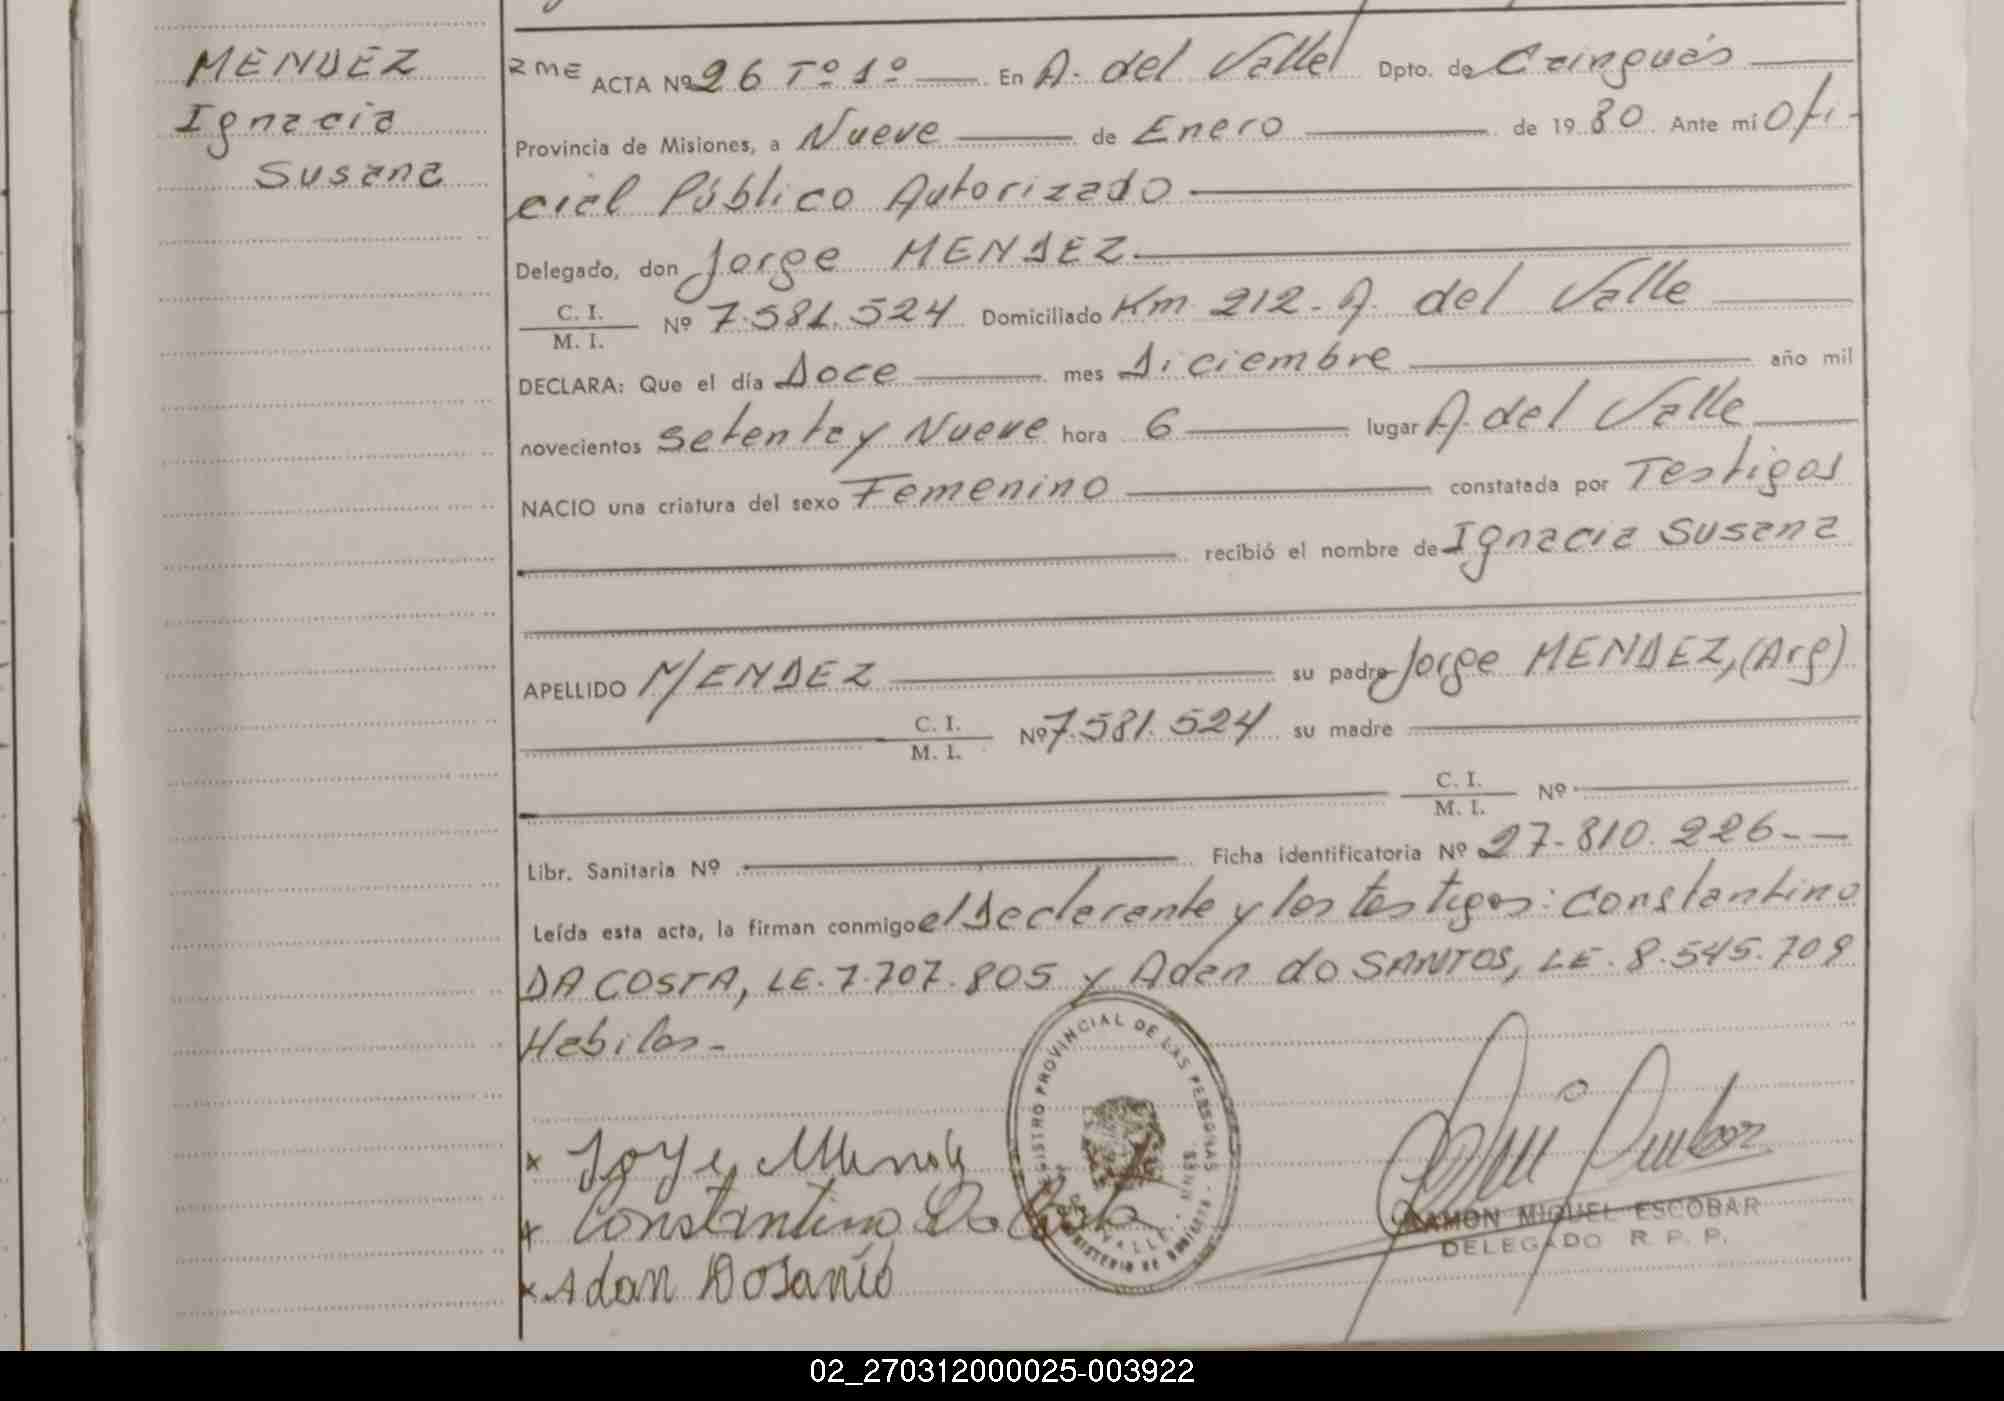 MENDEZ
Ignacia
Susana
RME ACTA Nº 26 Tº 1º En A. del Valle Dpto. de Caínguás
Provincia de Misiones, a Nueve de Enero de 1980. Ante mí Ofi-
cial Público Autorizado
Delegado, don Jorge MENDEZ
C. I.
M. I. Nº 7.581.524 Domiciliado Km 212 - A. del Valle
DECLARA: Que el día Doce mes Diciembre año mil
novecientos setenta y Nueve hora 6 lugar A. del Valle
NACIO una criatura del sexo Femenino constatada por Testigos
recibió el nombre de Ignacia Susana
APELLIDO MENDEZ su padre Jorge MENDEZ, (Arg)
C. I.
M. I. Nº 7.581.524 su madre
C. I.
M. I. Nº
Libr. Sanitaria Nº Ficha identificatoria Nº 27.810.226-
Leída esta acta, la firman conmigo el Declarante y los testigos: Constantino
DA COSTA, LE. 7.707.805 y Adan do SANTOS, LE. 8.545.709
Habiles-
x Jorge Mendez
x Constantino Da Costa
x Adan Dosanto
REGISTRO PROVINCIAL DE LAS PERSONAS
MINISTERIO DE
RAMON MIGUEL ESCOBAR
DELEGADO R. P. P.
02_270312000025-003922